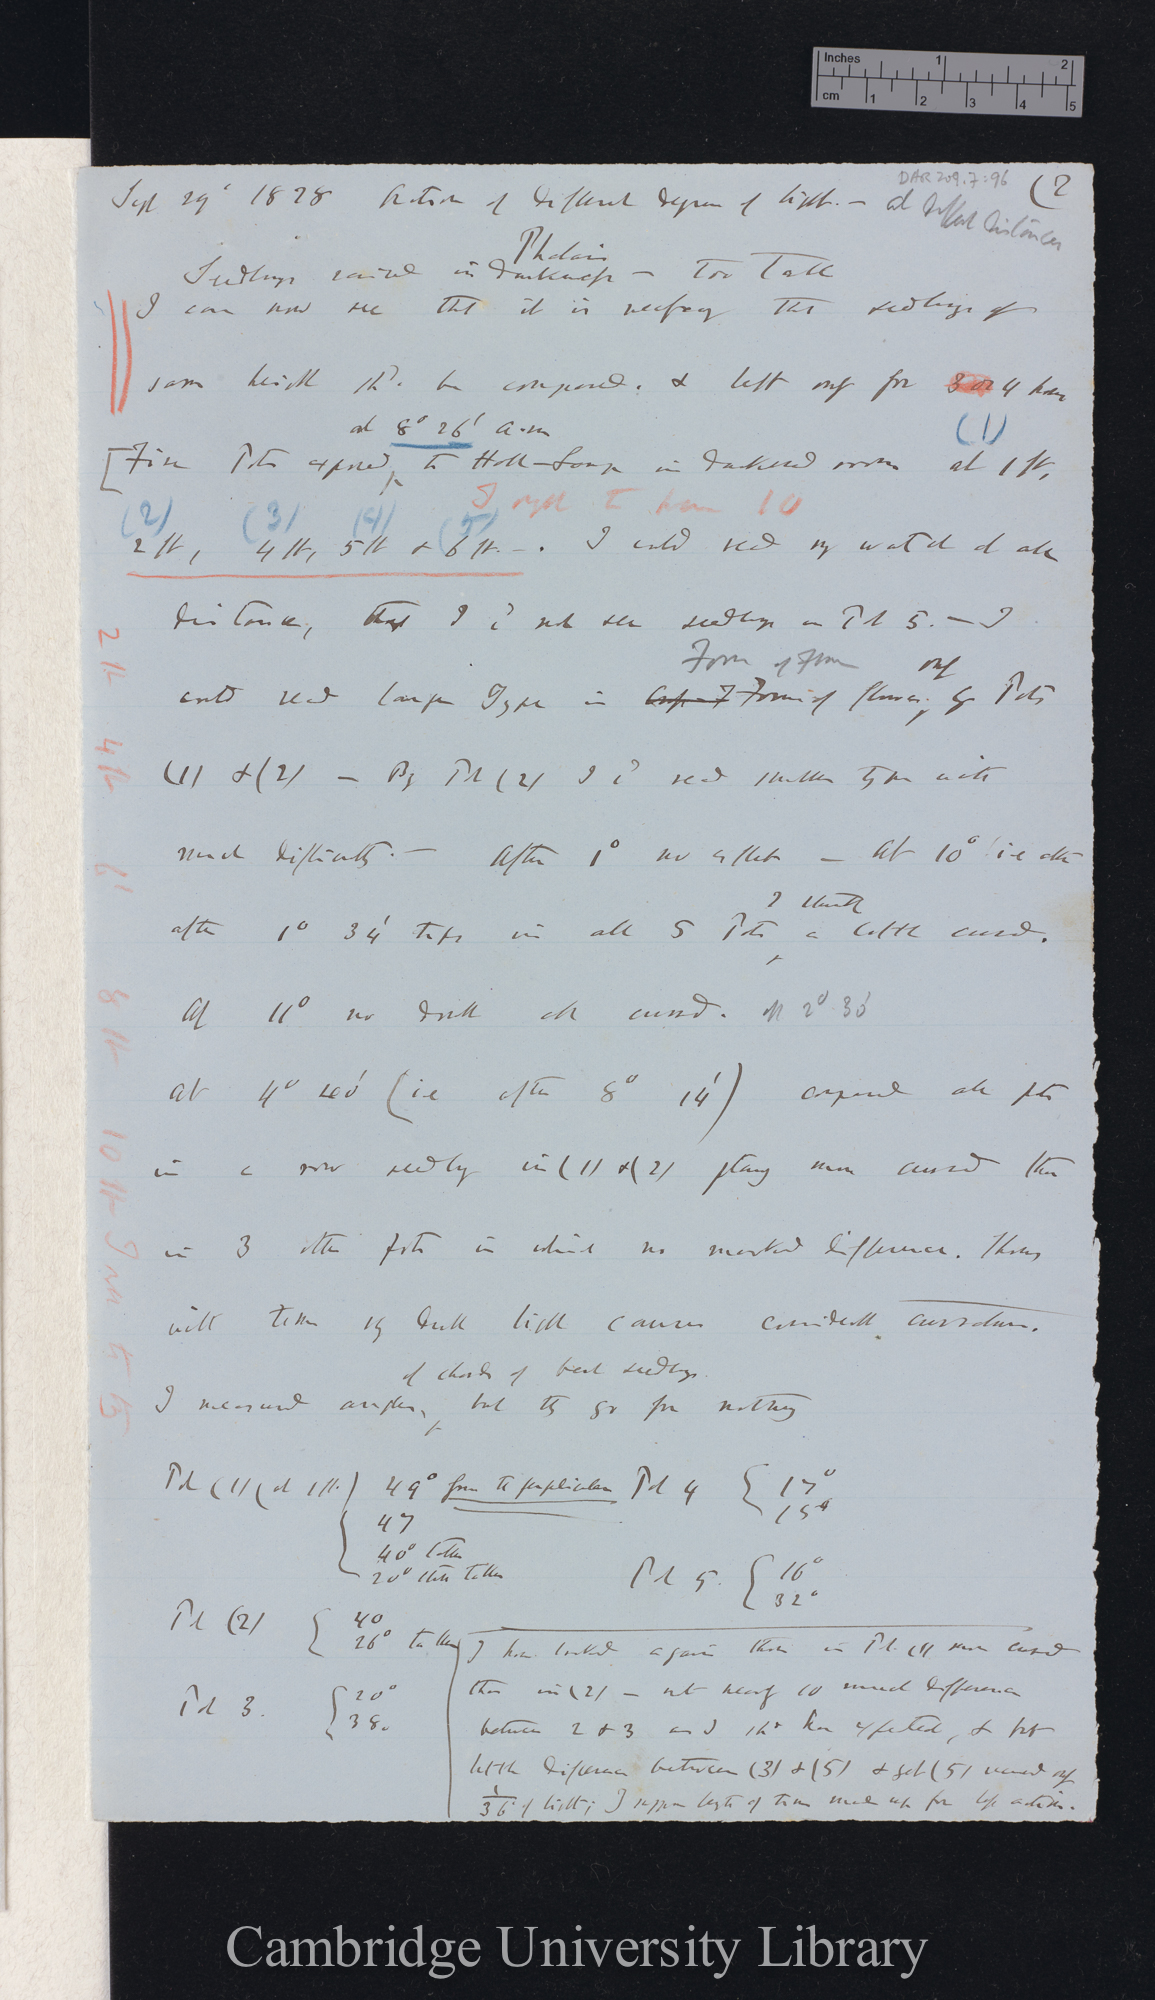 Inches 1 2
cm 1 2 3 4 5
DAR 209.7:96
(2
Sept 29 1828 Action of different degrees of light. — at different distances
Phalaris
Seedlings raised in darkness — Too Tall
I can now see that it is necessary that seedlings of
same height shd. be compared. & left only for 3 or 4 hours
at 8° 26' a.m
(1)
[Five Pots exposed, to Hall-Lamp in darkened room at 1 ft,
I ought to have 10
(2) (3) (4) (5)
2 ft, 4 ft, 5 ft & 6 ft. —. I could read my watch at all
distances, but I cd not see seedlings in Pot 5. — I
Form of Flower only
could read larger Type in Forms of flowers, by Pots
(1) & (2) — By Pot (2) I cd read smaller type with
much difficulty. — After 1° no effect — At 10° i.e
I think
after 1° 34' tips in all 5 Pots a little curved.
At 11° no doubt all curved. 2° 30'
at 4° 40' (i.e after 8° 14') compared all pots
in a row seedlings in (1) & (2) plainly more curved than
in 3 other pots in which no marked difference. Thus
with time very dull light causes considerable curvature.
of chords of bent seedlings
I measured angles, but they go for nothing
Pot (1) (at 1 ft.) 49° from the perpendicular
47
40° taller
20° little taller
Pot 4 { 17°
15°
Pot 5. { 16°
32°
Pot (2) { 40
26° taller
Pot 3. { 20°
38.
I have looked again those in Pot (1) more curved
than in (2) — not nearly so much difference
between 2 & 3 as I shd have expected, & but
little difference between (3) & (5) & yet (5) received only
1/36 of light; I suppose length of time made up for less action.
2 ft 4 ft 6' 8 ft 10 ft
Cambridge University Library